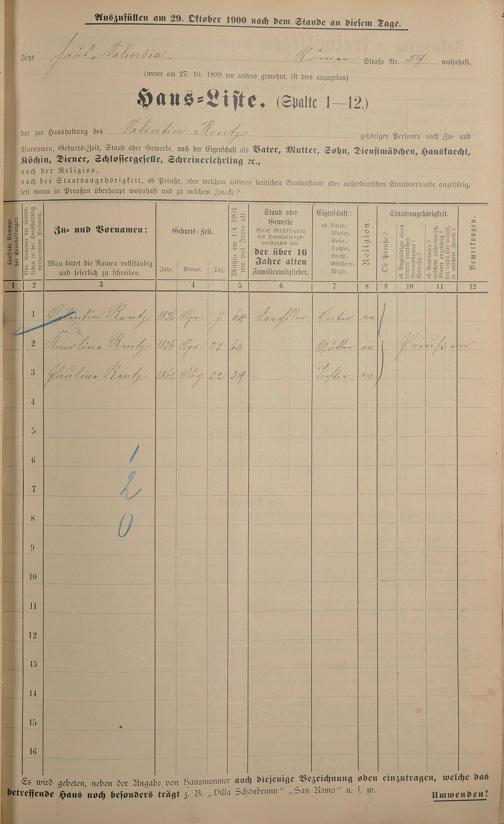 Auszufüllen am 29. Oktober 1900 nach dem Stande an diesem Tage.
Jetzt Haus Valencia. Römer Straße Nr. 59 wohnhaft.
(wenn am 27. 10. 1899 wo anders gewohnt, ist dies anzugeben)
Haus=Liste. (Spalte 1—12.)
der zur Haushaltung des Valentin Rentz gehörigen Personen nach Zu= und
Vornamen, Geburts=Zeit, Stand oder Gewerbe, nach der Eigenschaft als Vater, Mutter, Sohn, Dienstmädchen, Hausknecht,
Köchin, Diener, Schlossergeselle, Schreinerlehrling ꝛc.,
nach der Religion,
nach der Staatsangehörigkeit, ob Preuße, oder welchem anderen deutschen Bundesstaate oder außerdeutschen Staatsverbande angehörig,
seit wann in Preußen überhaupt wohnhaft und zu welchem Zwecke?
Laufende Nummer der Haushaltungen.
Zu= und Vornamen:
Man bittet die Namen vollständig und leserlich zu schreiben.
Geburts=Zeit.
Jahr. Monat. Tag.
Within am 1/4 1901 wie viel Jahre alt.
Stand oder Gewerbe
der über 16 Jahre alten Familienmitglieder.
Eigenschaft:
ob Vater, Mutter, Sohn, Tochter,
Religion.
Staatsangehörigkeit.
Ob Preuße?
Bemerkungen.
1 2 3 4 5 6 7 8 9 10 11 12
1 Valentin Rentz 1836 Apr. 7 64 Drechsler Vater ev.
2 Karolina Rentz 1836 Apr. 23 64 Mutter ev. Preußen
3 Paulina Rentz 1861 Aug 22 39 Tochter ev.
4
5
6 1
7 2
8 0
9
10
11
12
13
14
15
16
Es wird gebeten, neben der Angabe von Hausnummer auch diejenige Bezeichnung oben einzutragen, welche das
betreffende Haus noch besonders trägt z. B. „Villa Schönbrunn" „San Remo" u. s. w. Umwenden!